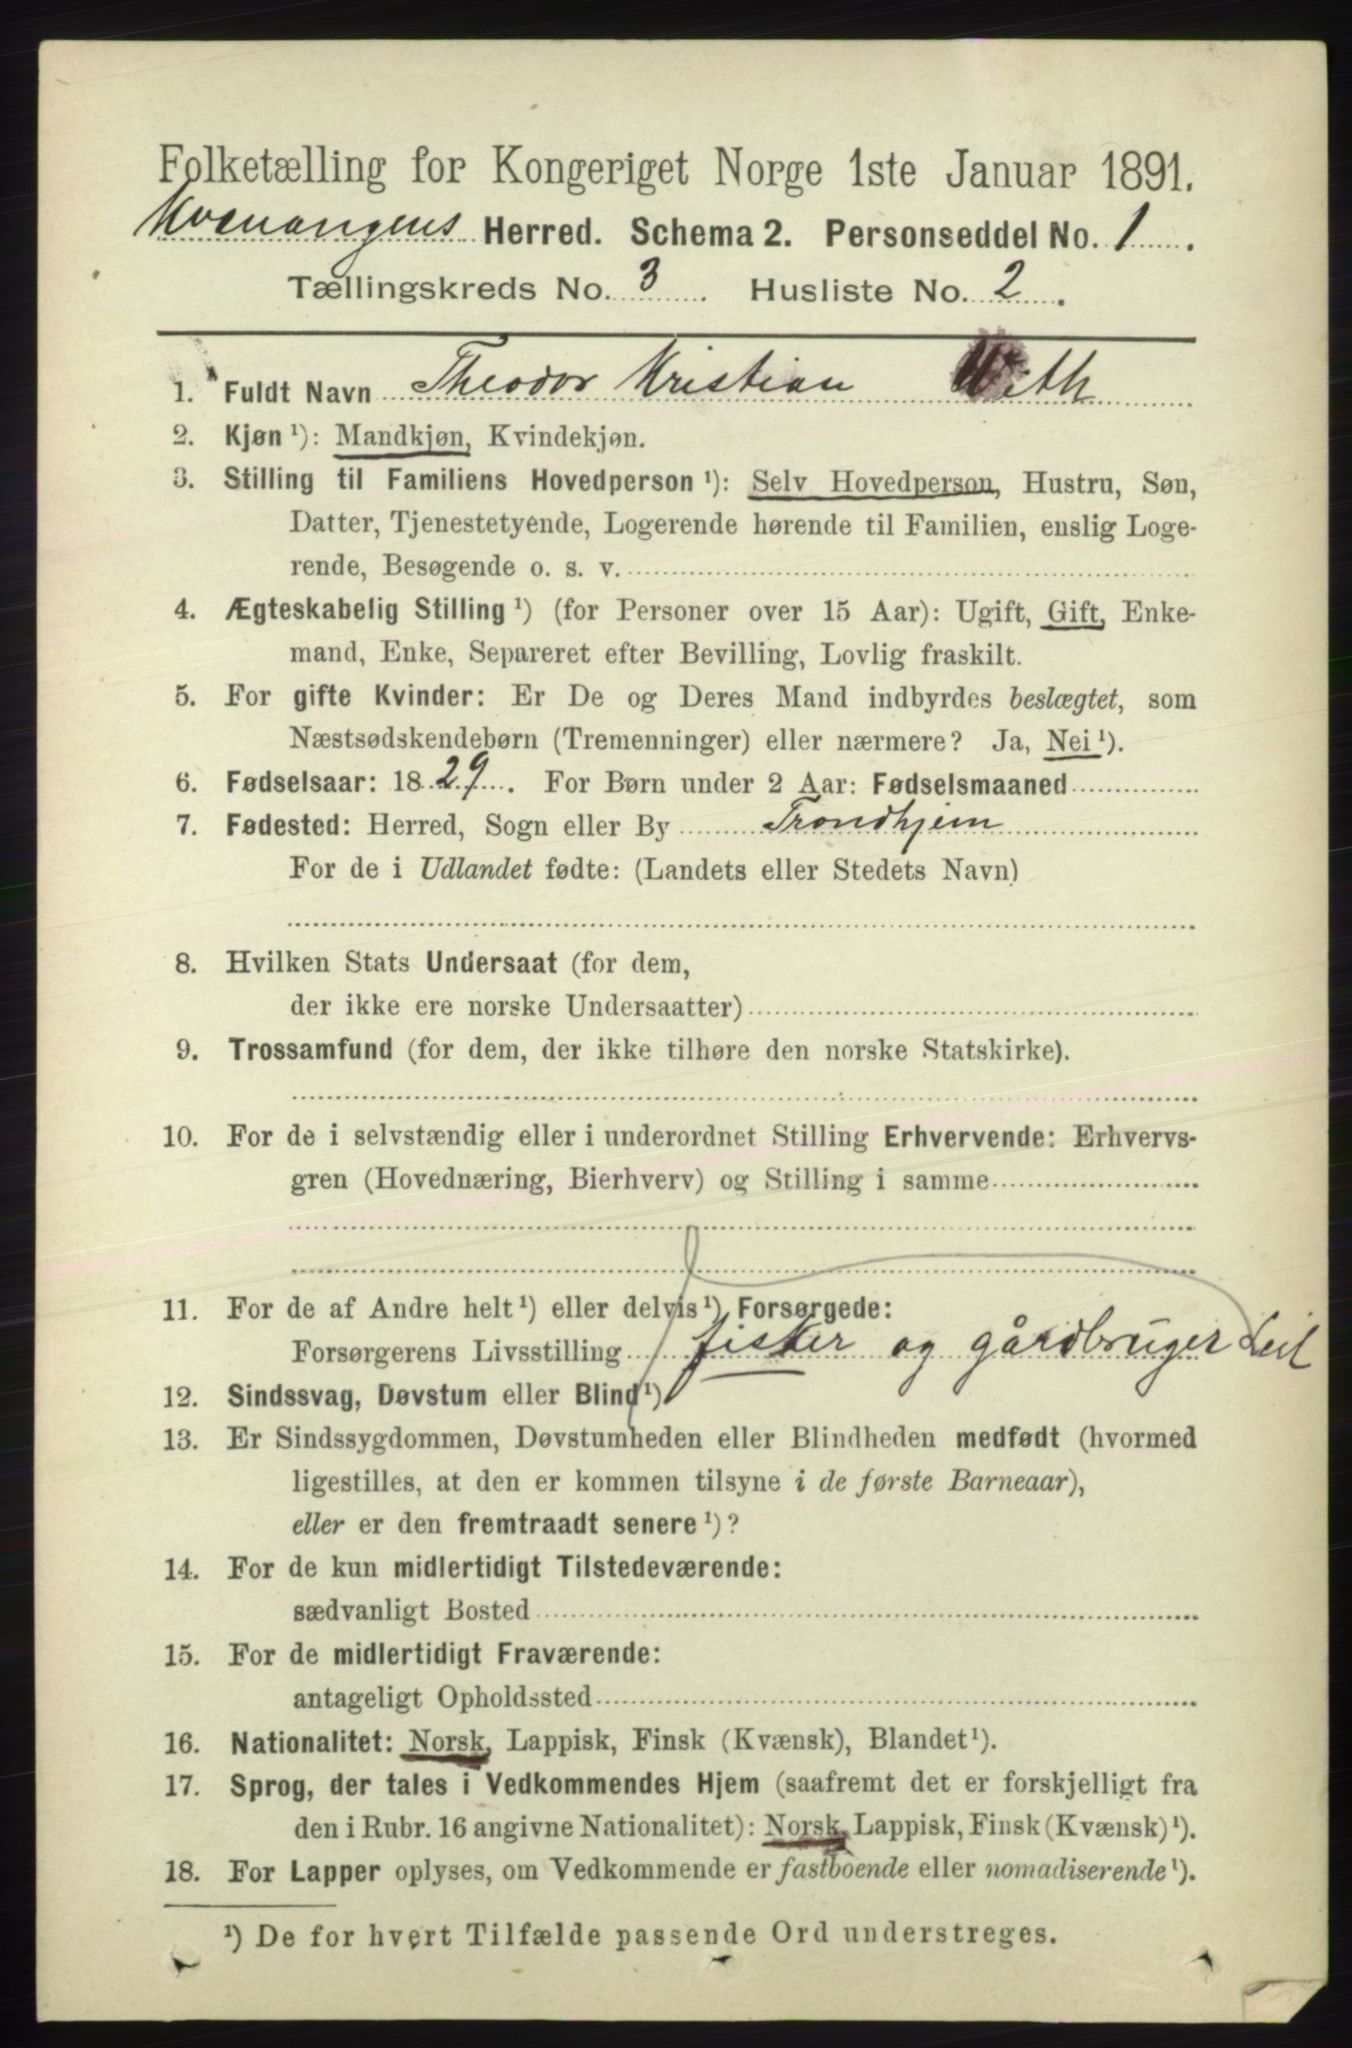 Folketælling for Kongeriget Norge 1ste Januar 1891.
Kvænangens Herred. Schema 2. Personseddel No. 1.
Tællingskreds No. 3. Husliste No. 2.
1. Fuldt Navn Theodor Kristian With
2. Kjøn ¹): Mandkjøn, Kvindekjøn.
3. Stilling til Familiens Hovedperson ¹): Selv Hovedperson, Hustru, Søn,
Datter, Tjenestetyende, Logerende hørende til Familien, enslig Loge-
rende, Besøgende o. s. v.
4. Ægteskabelig Stilling ¹) (for Personer over 15 Aar): Ugift, Gift, Enke-
mand, Enke, Separeret efter Bevilling, Lovlig fraskilt.
5. For gifte Kvinder: Er De og Deres Mand indbyrdes beslægtet, som
Næstsødskendebørn (Tremenninger) eller nærmere? Ja, Nei ¹).
6. Fødselsaar: 1829. For Børn under 2 Aar: Fødselsmaaned
7. Fødested: Herred, Sogn eller By Trondhjem
For de i Udlandet fødte: (Landets eller Stedets Navn)
8. Hvilken Stats Undersaat (for dem,
der ikke ere norske Undersaatter)
9. Trossamfund (for dem, der ikke tilhøre den norske Statskirke).
10. For de i selvstændig eller i underordnet Stilling Erhvervende: Erhvervs-
gren (Hovednæring, Bierhverv) og Stilling i samme
11. For de af Andre helt ¹) eller delvis ¹) Forsørgede:
Forsørgerens Livsstilling fisker og gårdbruger Leil
12. Sindssvag, Døvstum eller Blind ¹)
13. Er Sindssygdommen, Døvstumheden eller Blindheden medfødt (hvormed
ligestilles, at den er kommen tilsyne i de første Barneaar),
eller er den fremtraadt senere ¹)?
14. For de kun midlertidigt Tilstedeværende:
sædvanligt Bosted
15. For de midlertidigt Fraværende:
antageligt Opholdssted
16. Nationalitet: Norsk, Lappisk, Finsk (Kvænsk), Blandet ¹).
17. Sprog, der tales i Vedkommendes Hjem (saafremt det er forskjelligt fra
den i Rubr. 16 angivne Nationalitet): Norsk, Lappisk, Finsk (Kvænsk) ¹).
18. For Lapper oplyses, om Vedkommende er fastboende eller nomadiserende ¹).
¹) De for hvert Tilfælde passende Ord understreges.